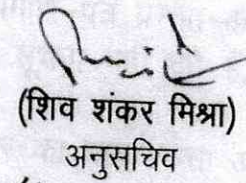 (शिव शंकर मिश्रा)
अनुसचिव